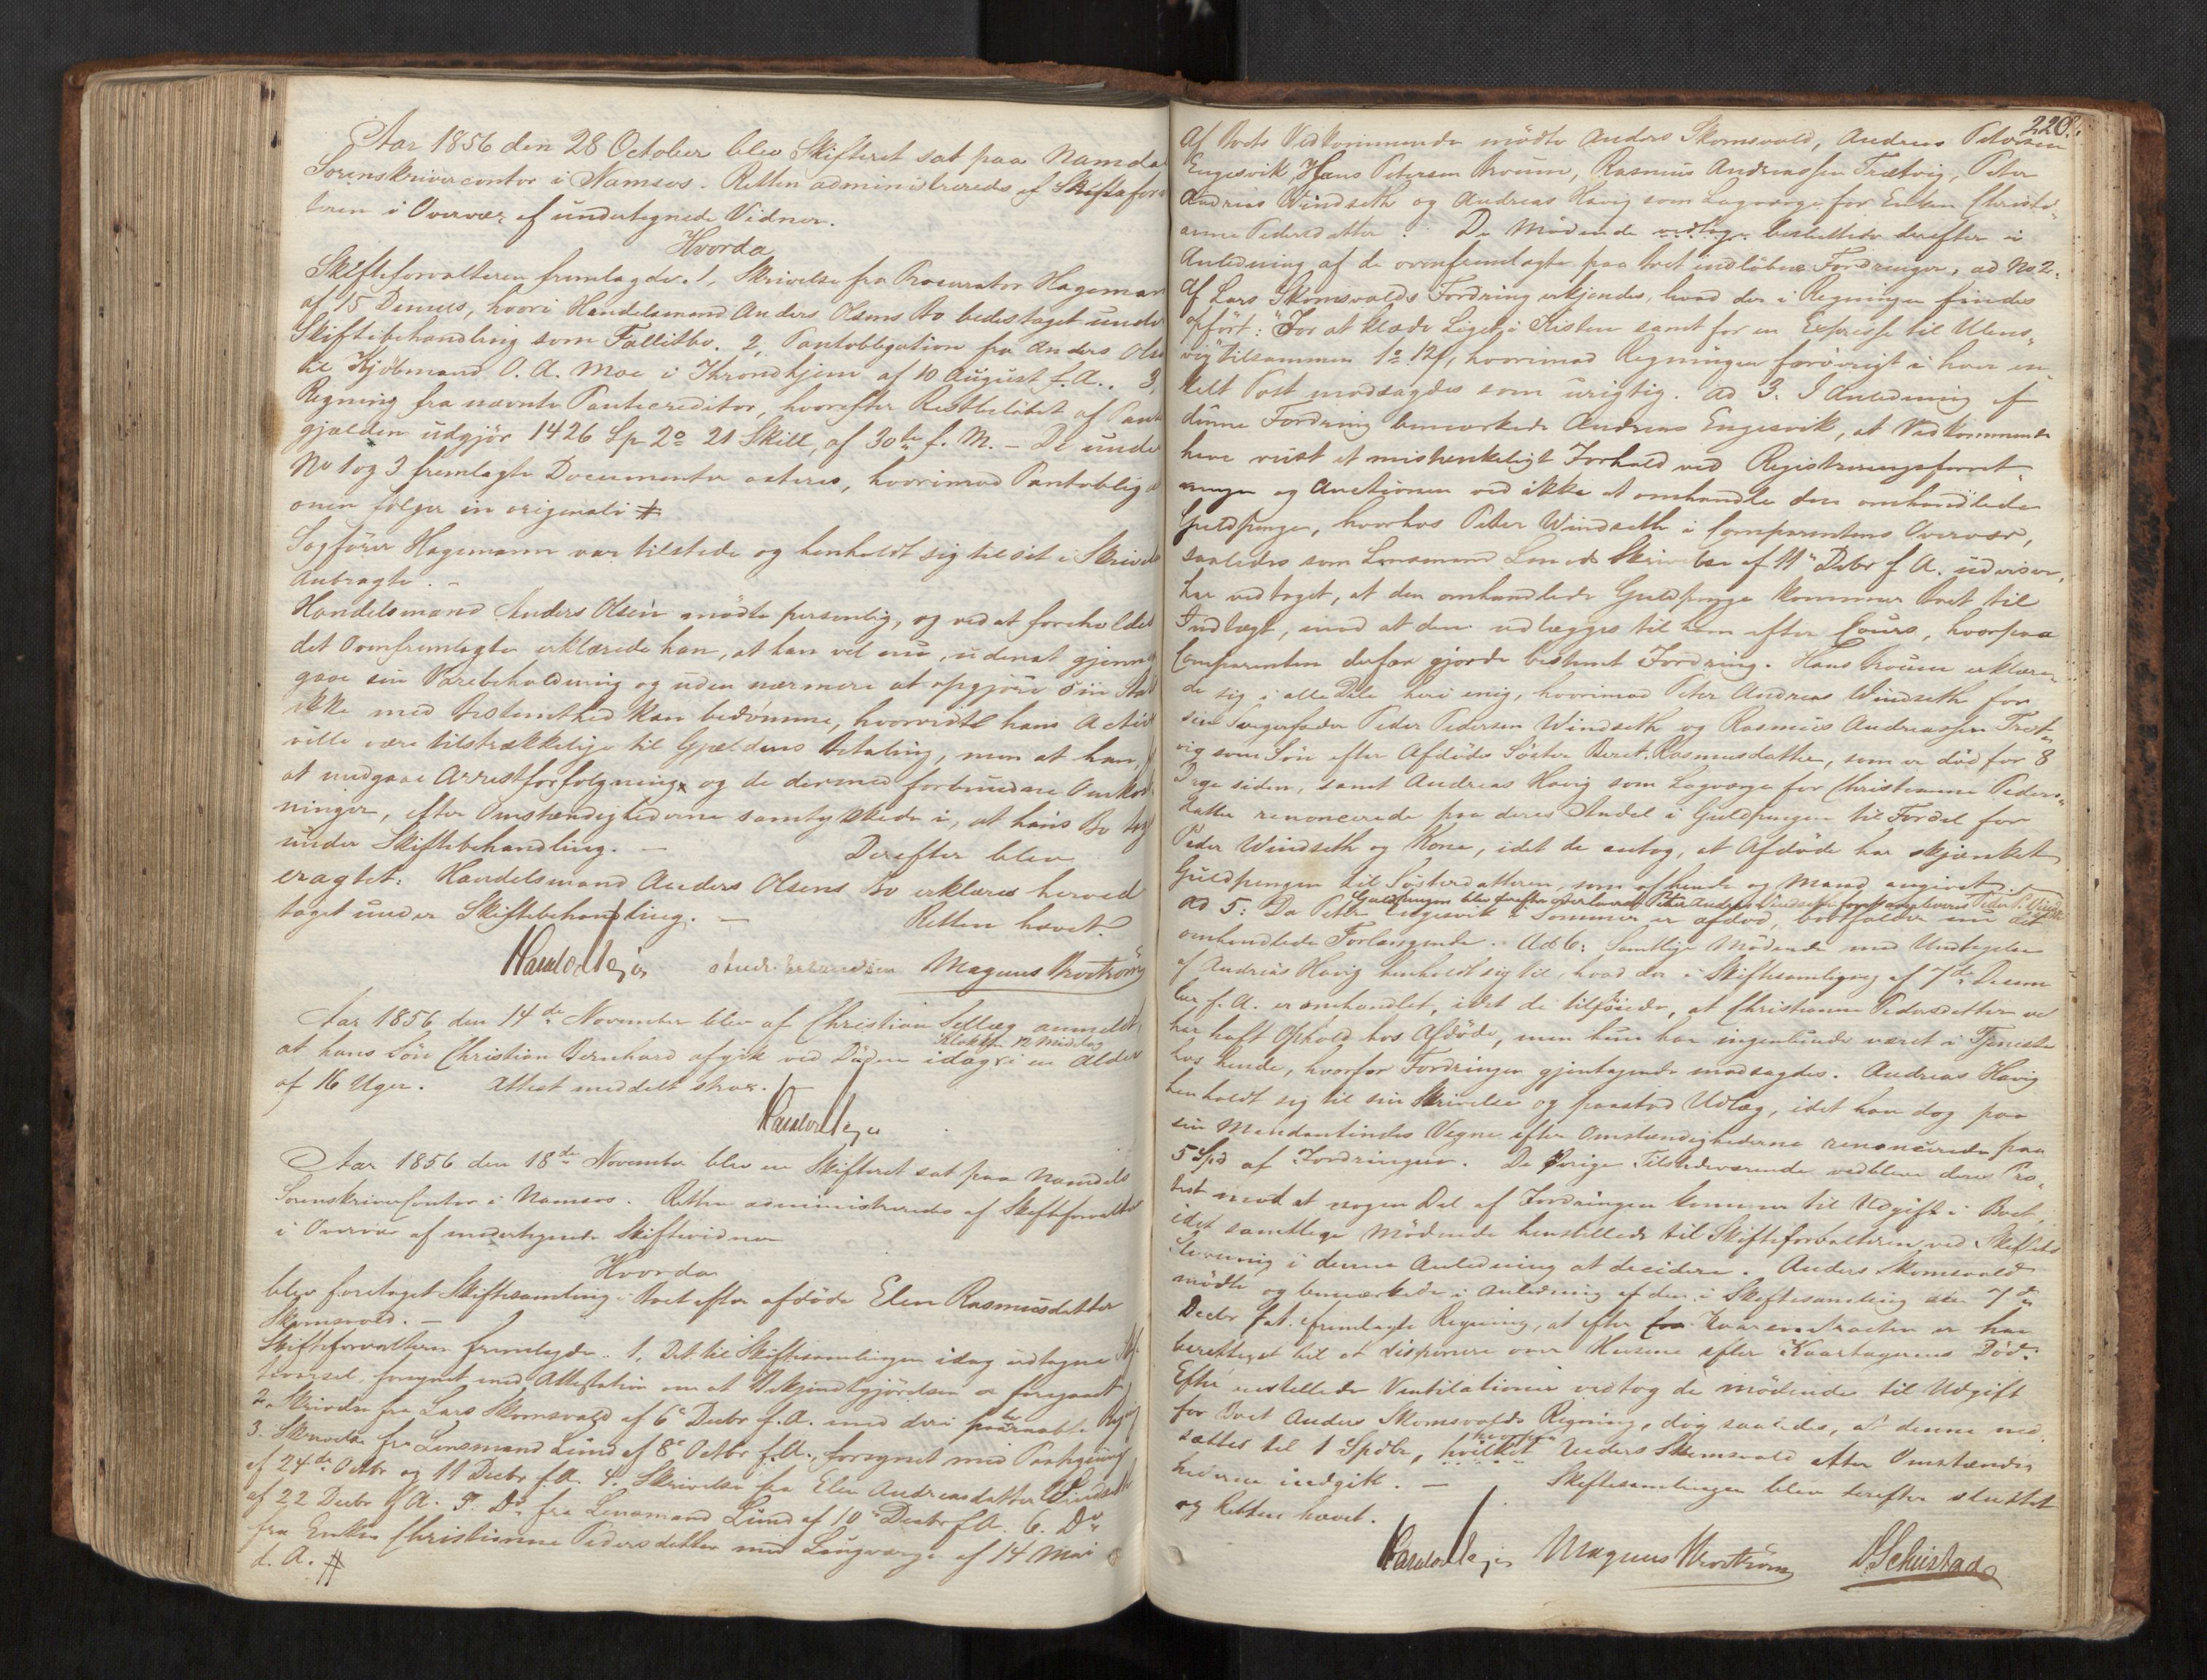 Aar 1856 den 28 October blev Skifteret sat paa Namda
Sorenskrivercontor i Namsos. Retten administreredes af Skiftefor
teren i Overvær af undertegnede Vidner.
Hvorda
Skifteforvalteren fremlagde. 1, Skrivelse fra Procurator Hageman
af 15 Dennes, hvori Handelsmand Anders Olsens Bo bedes taget unde
Skiftebehandling som Fallitbo. 2, Pantobligation fra Anders Ols
til Kjøbmand O. A. Moe i Throndhjem af 10 August f. A.. 3,
Regning fra nævnte Pantecreditor, hvorefter Restbeløbet af Pante
gjælden udgjør 1426 Sp 2o 21 Skill, af 30te f. M. - De unde
No 1 og 3 fremlagte Documenter acteres, hvorimod Pantobliga
onen følger in originali #
Sagfører Hagemann var tilstede og henholdt sig til sit i Skrivel
Anbragte. -
Handelsmand Anders Olsen mødte personlig, og ved at foreholdes
det Ovenfremlagte erklærede han, at han vel nu, uden at gjennem
gaae sin Varebeholdning og uden nærmere at opgjøre sin Stat
ikke med Bestemthed kan bedømme, hvorvidt hans Activa
ville være tilstrækkelige til Gjældens Betaling, men at han,
at undgaae Arrestforfølgning og de dermed forbundne Omkost
ninger, efter Omstændighederne samtykkede i, at hans Bo tages
under Skiftebehandling. - Derefter blev
eragtet: Handelsmand Anders Olsens Bo erklæres herved
taget under Skiftebehandling. - Retten hævet.
Magnus
Aar 1856 den 14de November blev af Christian Sellæg anmeldt,
at hans Søn Christian Bernhard afgik ved Døden idag Klokken 12 Middag i en Alder
af 16 Uger. Attest meddelt strax.
Aar 1856 den 18de November blev en Skifteret sat paa Namdals
Sorenskrivercontor i Namsos. Retten administreredes af Skifteforvalte
i Overvær af undertegnede Skiftevidner
Hvorda
blev foretaget Skiftesamling i Boet efter afdøde Elen Rasmusdatter
Skomsvold. -
Skifteforvalteren fremlagde. 1, Det til Skiftesamlingen idag udtagne
varsel, forsynet med Attestation om at Bekjendtgjørelsen er foregaaet
2. Skrivelse fra Lars Skomsvold af 6te Decbr f. A. med deri
3. Skrivelse fra Lensmand Lund af 8de Octbr f. A., forsynet med Paategning
af 24de Octbr og 11 Decbr f. A. 4. Skrivelse fra Elen Andreasdatter Windseth
af 22 Decbr f A. 5. Do fra Lensmand Lund af 10de Decbr f A. 6. Do
fra Enken Christianne Pedersdatter med Laugværge af 14 Mai
d. A. #
220.
Af Boets Vedkommende mødte Anders Skomsvold, Andreas Petersen
Engesvik, Hans Petersen Broum, Rasmus Andreassen Trætvig, Peter
Andreas Windseth og Andreas Høvig som Lagværge for Enken Christi
anne Pedersdatter. De Mødende vedtoge besluttede derefter i
Anledning af de ovenfremlagte paa Boet indløbne Fordringer, ad No 2.
Af Lars Skomsvolds Fordring erkjendes, hvad der i Regningen findes
opført: "For at klæde Liget i Kisten samt for en Expresse til Ulens
vig" tilsammen 1o 12s, hvorimod Regningen forøvrigt i hver en
kelt Post modsagdes som urigtig. ad 3. I Anledning af
denne Fordring bemærkede Andreas Engesvik, at Vedkommende
have viist et mistænkeligt Forhold ved Registreringsforret
ningen og Auctionen ved ikke at omhandle den omhandlede
Guldpenge, hvorhos Peter Windseth i Comparentens Overvær,
saaledes som Lensmand Lunds Skrivelse af 11te Decbr f. A. udviser,
har vedtaget, at den omhandlede Guldpenge kommer Boet til
Indtægt, imod at den udlægges til ham efter Cours, hvorpaa
Comparenten derfor gjorde bestemt Fordring. Hans Broum erklære
de sig i alle Dele heri enig, hvorimod Peter Andreas Windseth for
sin Svigerfader Peder Pedersen Windseth og Rasmus Andreassen Træt
vig som Søn efter Afdødes Søster Beret Rasmusdatter, som er død for 8
Dage siden, samt Andreas Høvig som Lagværge for Christianne Peders
datter renoncerede paa deres Andel i Guldpengen til Fordel for
Peder Windseth og Kone, idet de antog, at Afdøde har skjænket
Guldpengen til Søsterdatteren, som af hende og Mand angivet.
Guldpengen blev derefter overleveret Peter Andreas Windseth for Peder P. Windseth
ad 5: Da Peter Engesvik i Sommer er afdød, bortfalder nu det
omhandlede Forlangende. Ad 6: Samtlige Mødende med Undtagelse
af Andreas Høvig henholdt sig til, hvad der i Skiftesamlingen af 7de Decem
ber f. A. er omhandlet, idet de tilføiede, at Christianne Pedersdatter vel
har haft Ophold hos Afdøde, men hun har ingenlunde været i Tjeneste
hos hende, hvorfor Fordringen gjentagende modsagdes. Andreas Høvig
henholdt sig til sin Skrivelse og paastod Udlæg, idet han dog paa
sin Mandantindes Vegne efter Omstændighederne renoncerede paa
5 Spd af Fordringen. De Øvrige Tilstedeværende vedbleve deres Pro
test mod at nogen Del af Fordringen kommer til Udgift i Boet,
idet samtlige Mødende henstillede til Skifteforvalteren ved Skiftets
Slutning i denne Anledning at decidere. Anders Skomsvold
mødte og bemærkede i Anledning af den i Skiftesamling den 7de
Decbr f. A. fremlagte Regning, at efter Kaarcontracten er han
berettiget til at disponere over Husene efter Kaartagerens Død.
Efter anstillede Ventilationer vedtog de mødende til Udgift
for Boet Anders Skomsvolds Regning, dog saaledes, at denne ned
sættes til 1 Spdlr, hvilket hvorpaa Anders Skomsvold efter Omstændig
hederne indgik. - Skiftesamlingen blev derefter sluttet
og Retten hævet.
Magnus